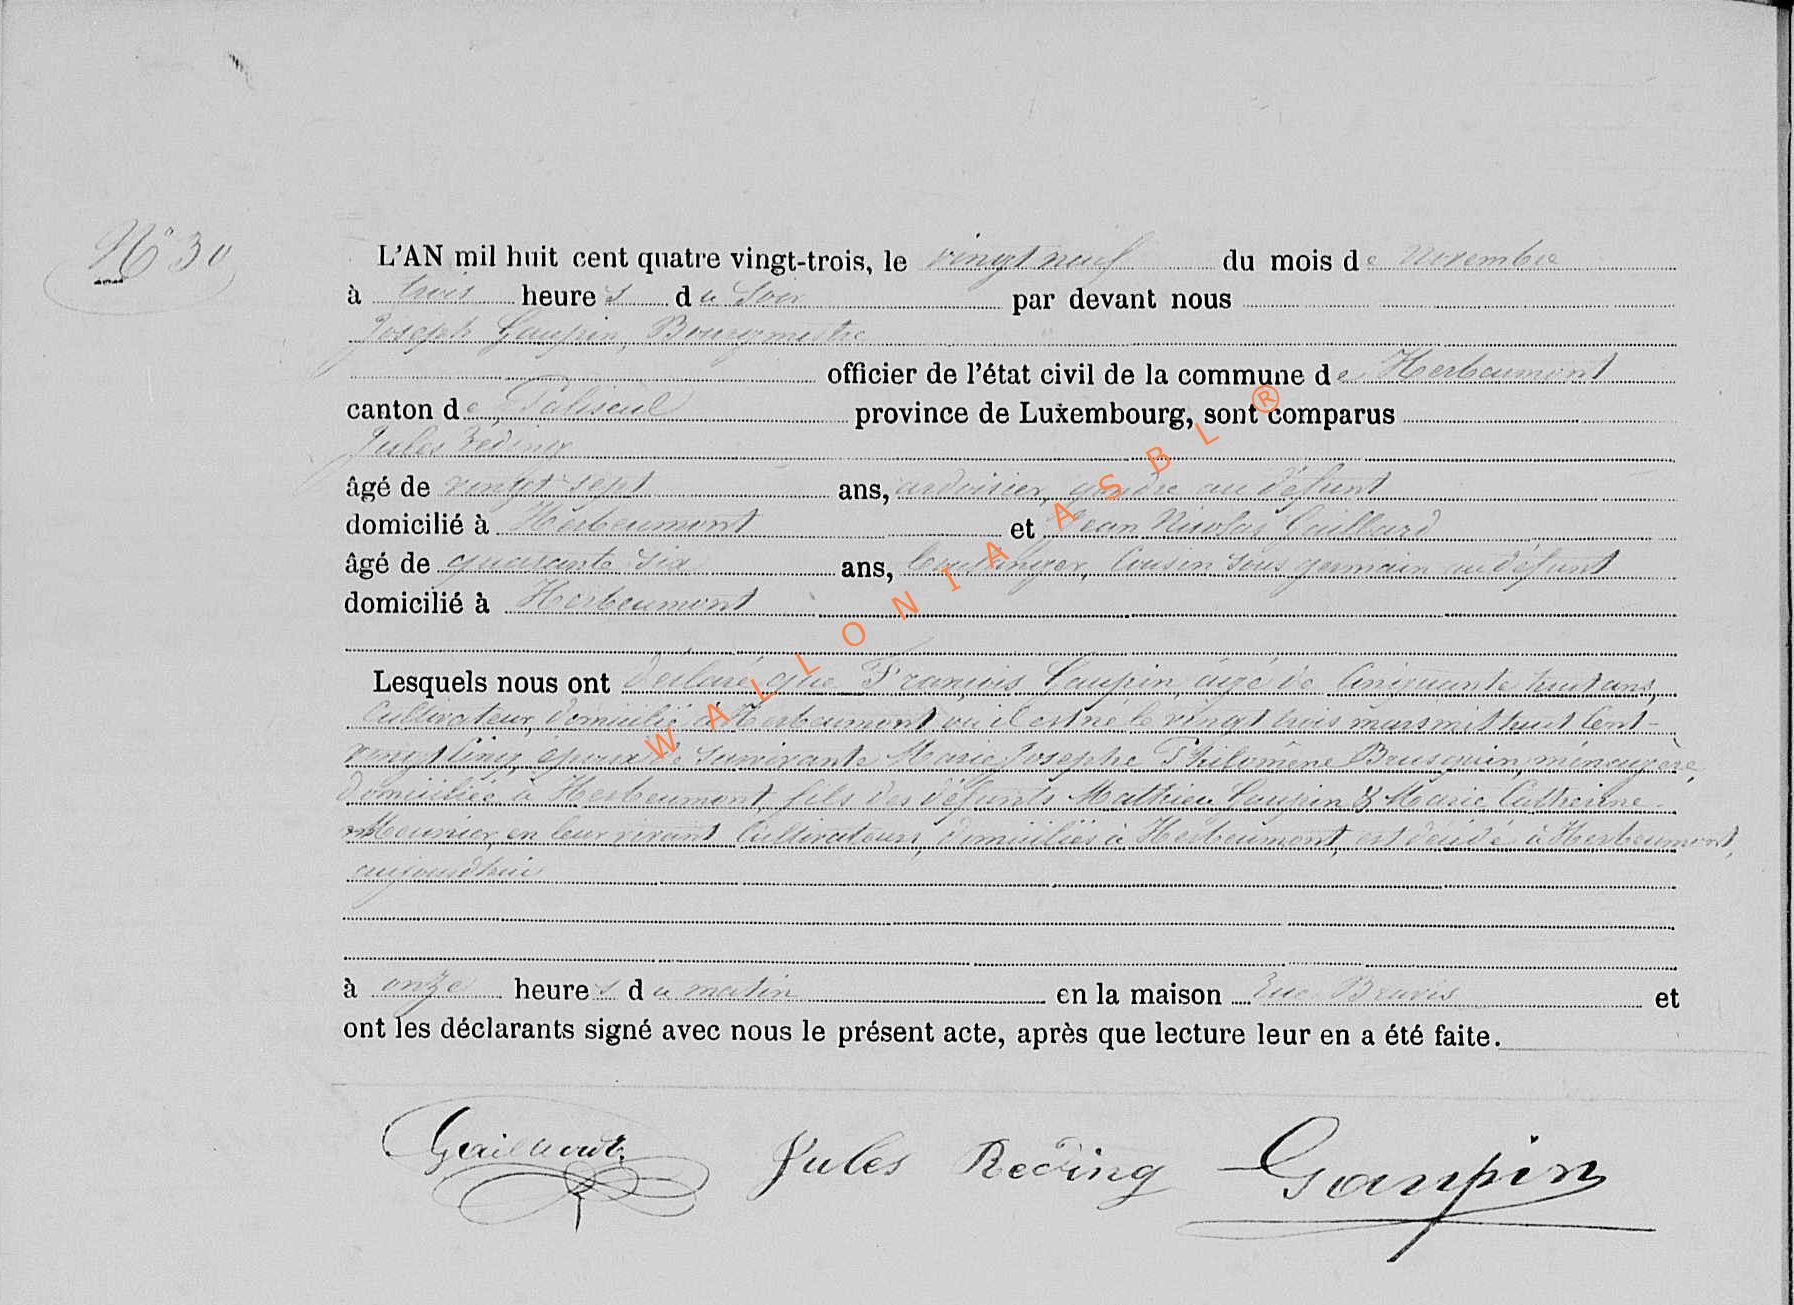 N° 30
L'AN mil huit cent quatre vingt-trois, le vingt neuf du mois de Novembre
à trois heures du Soir par devant nous
Joseph Gaupin, Bourgmestre
officier de l'état civil de la commune de Herbeumont
canton de Paliseul province de Luxembourg, sont comparus
Jules Réding
âgé de vingt sept ans, ardoisier, gendre au défunt
domicilié à Herbeumont et Jean Nicolas Gaillard
âgé de quarante six ans, boulanger, Cousin sous germain au défunt
domicilié à Herbeumont
Lesquels nous ont déclaré que François Gaupin, âgé de Cinquante huit ans,
Cultivateur, domicilié à Herbeumont où il est né le vingt trois mars mil huit Cent-
vingt Cinq, époux de survivante Marie Josephe Philomène Brusquin, ménagère,
domiciliée à Herbeumont, fils des défunts Mathieu Gaupin & Marie Catherine
Meunier, en leur vivant Cultivateurs, domiciliés à Herbeumont, est décédé à Herbeumont,
aujourd'hui
à onze heures du matin en la maison rue et
ont les déclarants signé avec nous le présent acte, après que lecture leur en a été faite.
Jules Reding Gaupin
WALLONIA ASBL ®